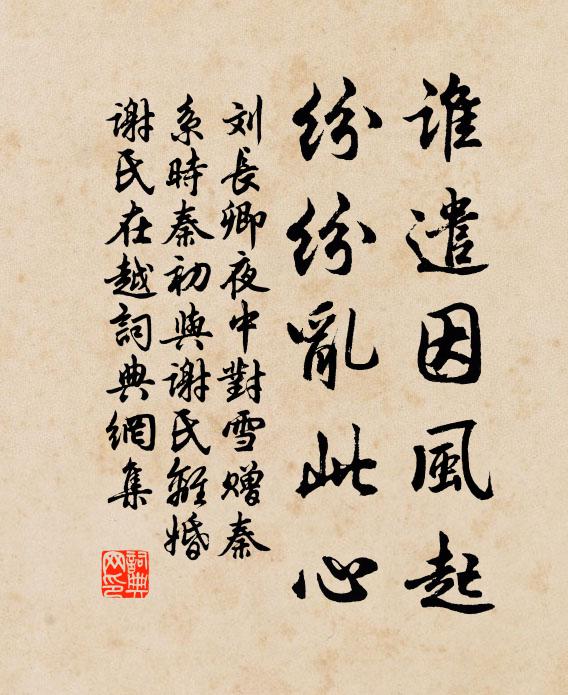 誰遣因風起
紛紛亂此心
刘長卿夜中對雪赠秦
系時秦初與谢氏離婚
谢氏在越詞典網集
詞典
网印